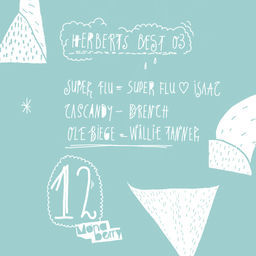 HERBERTS BEST 03
SUPER FLU = SUPER FLU ♡ ISAAC
CASCANDY - BRENCH
OLE BIEGE = WILLIE TANNER
12
Mona
berry